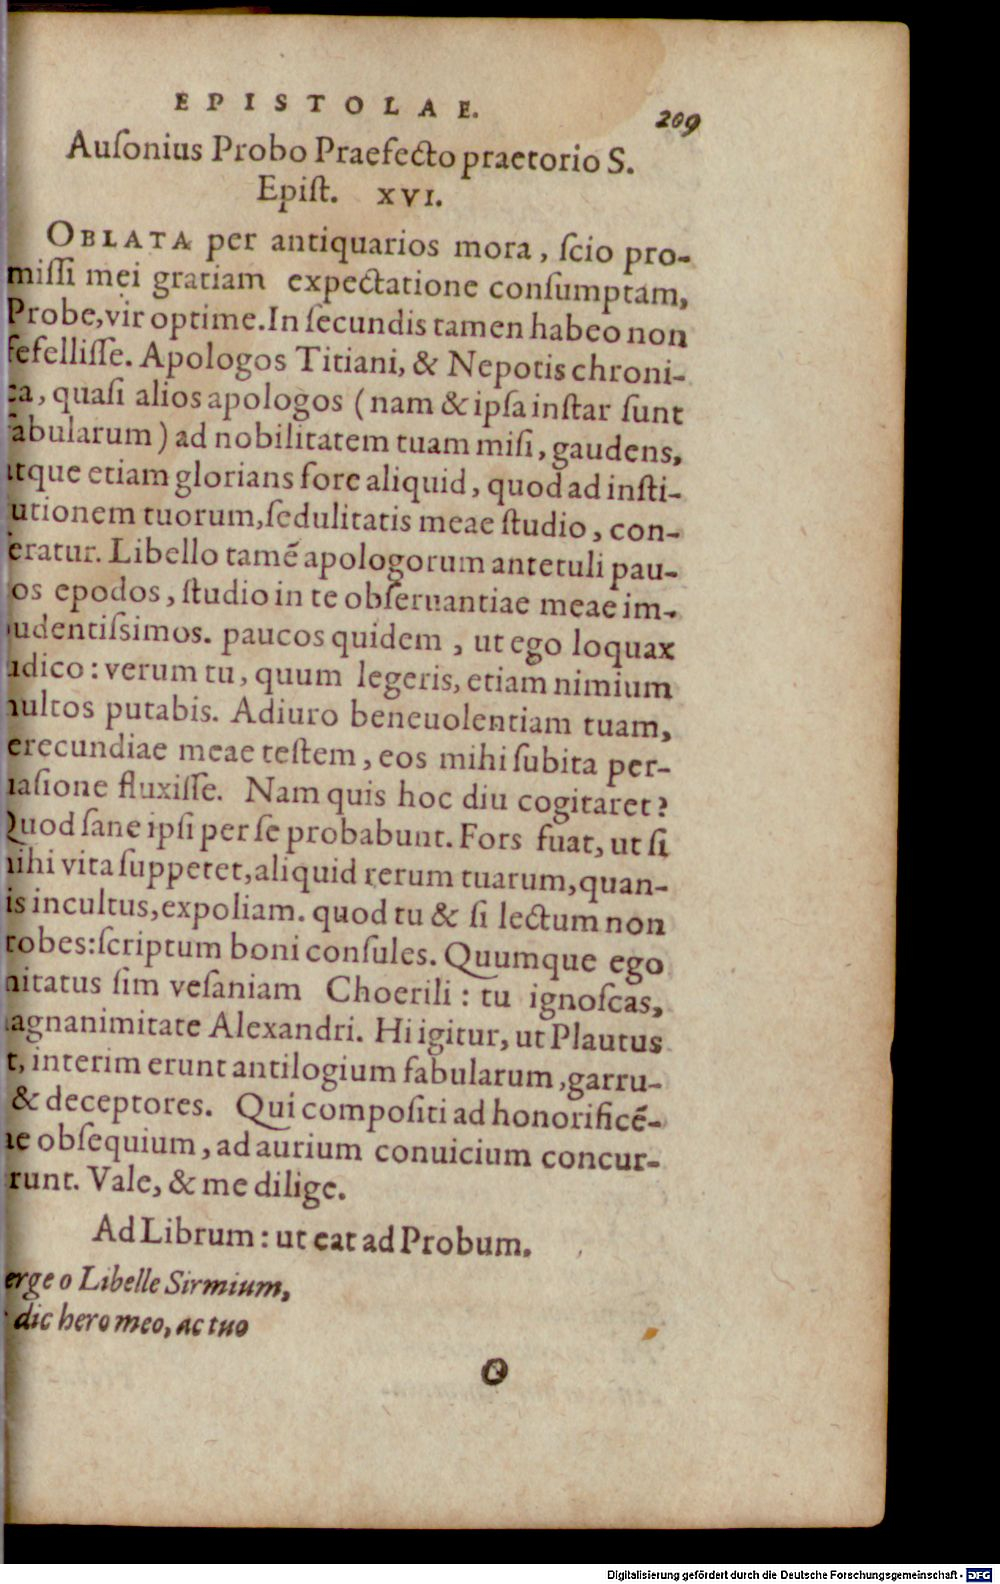 EPISTOLAE. 209
Auſonius Probo Praefecto praetorio S.
Epiſt. XVI.
OBLATA per antiquarios mora, ſcio pro-
miſſi mei gratiam expectatione conſumptam,
Probe, vir optime. In ſecundis tamen habeo non
fefelliſſe. Apologos Titiani, & Nepotis chroni-
ca, quaſi alios apologos (nam & ipſa inſtar ſunt
fabularum) ad nobilitatem tuam miſi, gaudens,
atque etiam glorians fore aliquid, quod ad inſti-
utionem tuorum, ſedulitatis meae ſtudio, con-
feratur. Libello tamẽ apologorum antetuli pau-
os epodos, ſtudio in te obſeruantiae meae im-
udentiſsimos. paucos quidem, ut ego loquax
udico: verum tu, quum legeris, etiam nimium
multos putabis. Adiuro beneuolentiam tuam,
erecundiae meae teſtem, eos mihi ſubita per-
uaſione fluxiſſe. Nam quis hoc diu cogitaret?
Quod ſane ipſi per ſe probabunt. Fors fuat, ut ſi
mihi vita ſuppetet, aliquid rerum tuarum, quan-
is incultus, expoliam. quod tu & ſi lectum non
robes: ſcriptum boni conſules. Quumque ego
mitatus ſim veſaniam Choerili: tu ignoſcas,
magnanimitate Alexandri. Hi igitur, ut Plautus
t, interim erunt antilogium fabularum, garru-
& deceptores. Qui compoſiti ad honorificẽ-
ae obſequium, ad aurium conuicium concur-
runt. Vale, & me dilige.
Ad Librum: ut eat ad Probum.
erge o Libelle Sirmium,
dic hero meo, ac tuo
O
Digitalisierung gefördert durch die Deutsche Forschungsgemeinschaft - DFG